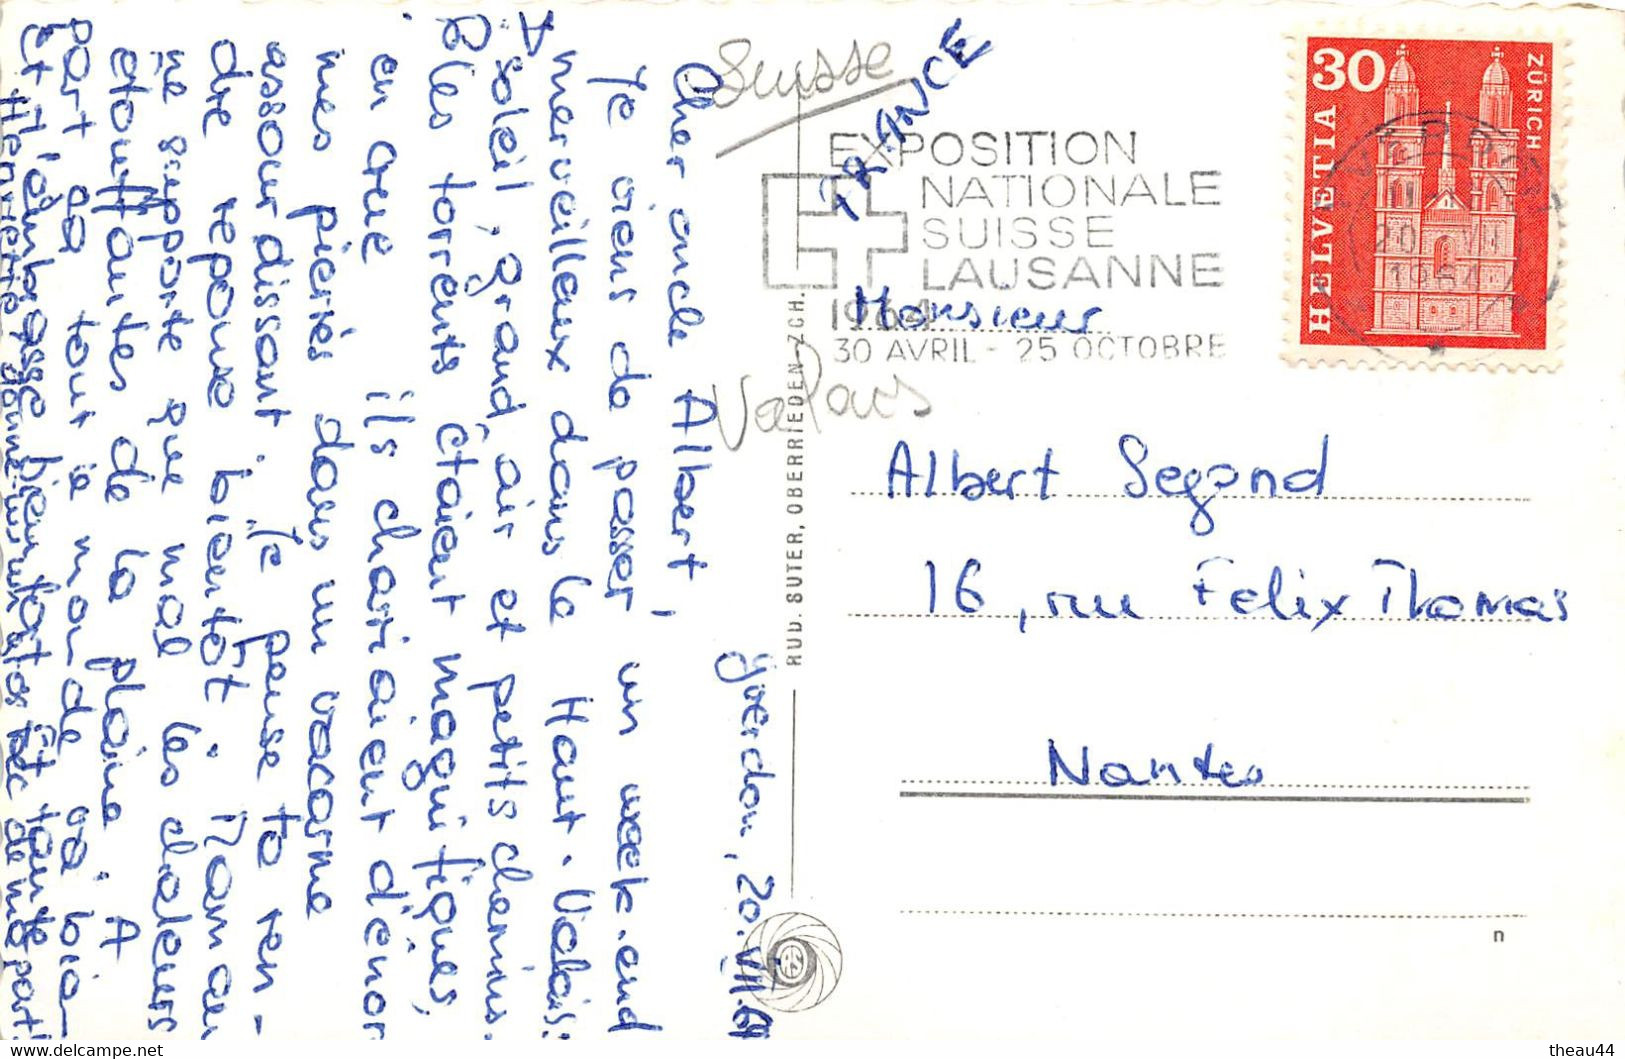 Yverdon, 20.VII.64
Cher oncle Albert,
Je viens de passer un week-end
merveilleux dans le Haut-Valais:
soleil, grand air et petits chemins.
Les torrents étaient magnifiques,
en crue ils charriaient d'énor
mes pierres dans un vacarme
assourdissant. Je pense te ren-
dre réponse bientôt. Maman
ne supporte que mal les chaleurs
étouffantes de la plaine. A
part ça tout le monde va bien
Et j'embrasse bien fort et tante
Henriette
de ma part!
Suisse
Valais
FRANCE
EXPOSITION
NATIONALE
SUISSE
LAUSANNE
1964
30 AVRIL - 25 OCTOBRE
30
HELVETIA
ZÜRICH
YVERDON
20 VII
1964
RUD. SUTER, OBERRIEDEN-ZCH.
Monsieur
Albert Segond
16, rue Felix Thomas
Nantes
n
www.delcampe.net
theau44